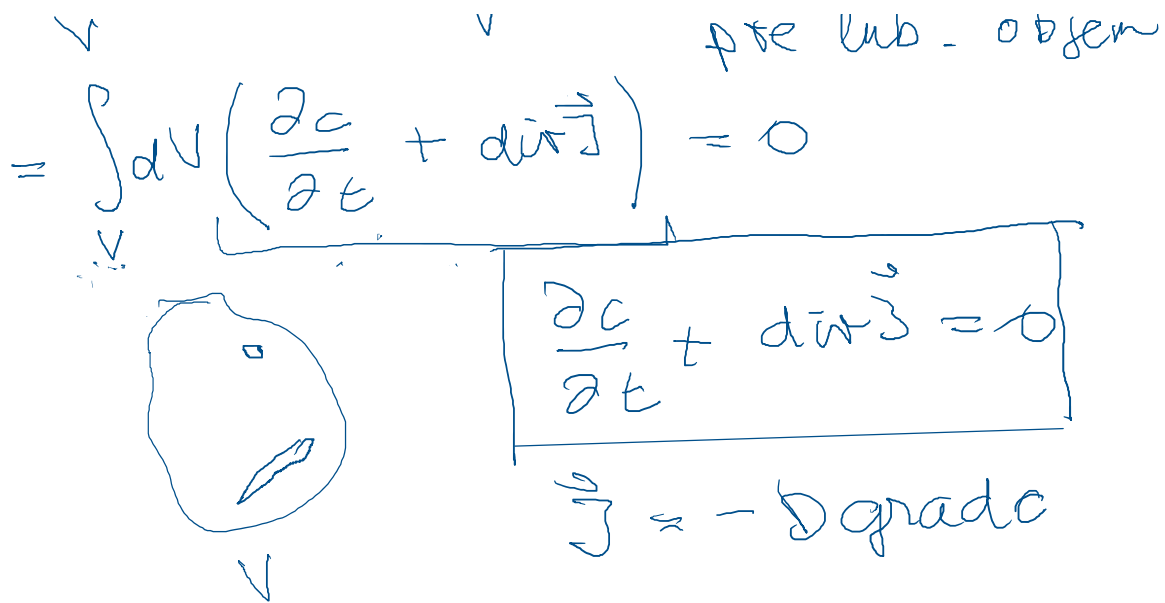 V V pre ľub. objem
= ∫ dV ( ∂c/∂t + div J⃗ ) = 0
V
∂c/∂t + div J⃗ = 0
J⃗ = - D grad c
V